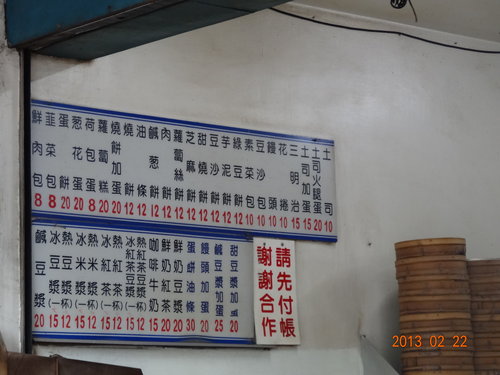 土司 10
土司火腿蛋 20
土司加蛋 15
三明治 15
花捲 10
饅頭 10
豆沙包 10
素菜包 10
綠豆包 12
芋泥包 12
豆沙餅 12
甜燒餅 12
芝麻餅 12
蘿蔔絲餅 12
肉餅 12
鹹葱餅 12
油條 12
燒餅 12
燒餅加蛋 20
蘿蔔糕 12
荷包蛋 12
葱花蛋 20
蛋餅 20
韮菜包 8
鮮肉包 8
甜豆漿加蛋 20
鹹豆漿加蛋 25
饅頭加蛋 20
蛋餅油條 30
鮮奶豆漿 20
鮮奶紅茶 20
咖啡牛奶 15
熱紅茶豆漿(一杯) 12
冰紅茶豆漿(一杯) 15
冰紅茶(一杯) 15
熱米漿(一杯) 12
冰米漿(一杯) 15
熱豆漿(一杯) 12
冰豆漿(一杯) 15
鹹豆漿 20
請先付帳
謝謝合作
2013 02 22